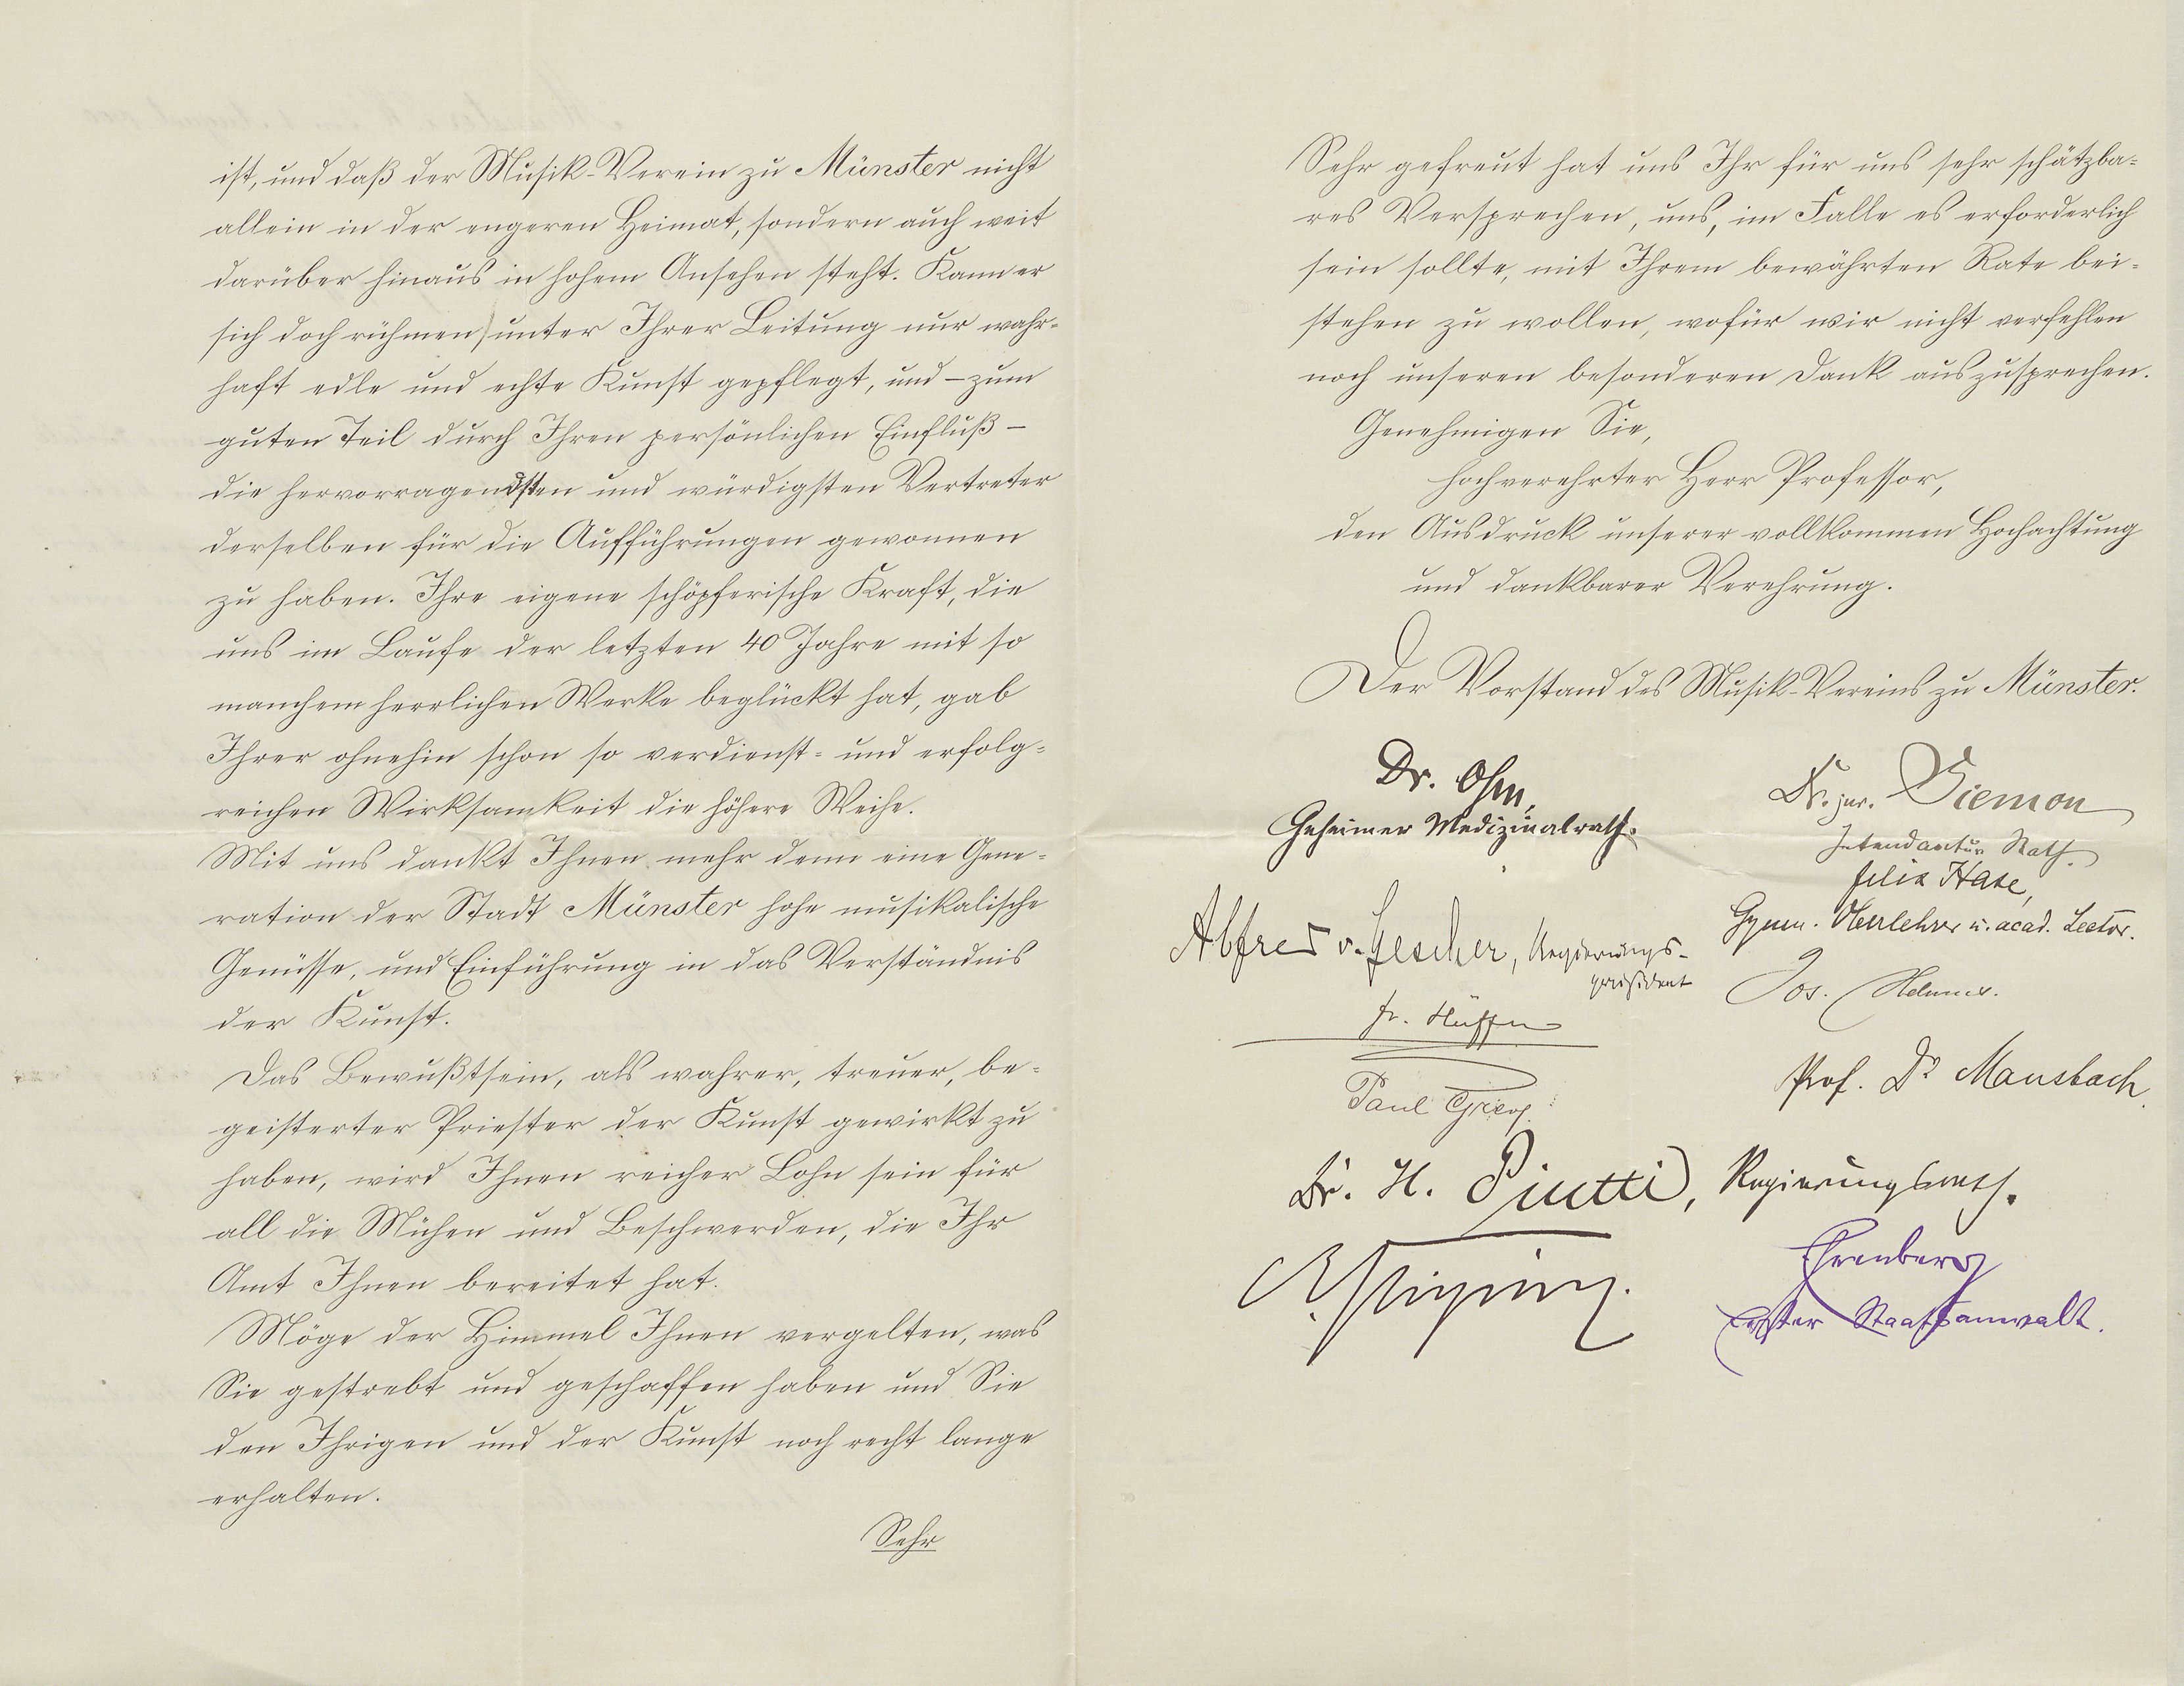 ist, und daß der Musik-Verein zu Münster nicht
allein in der engeren Heimat, sondern auch weit
darüber hinaus in hohem Ansehen steht. Kann er
sich doch rühmen, unter Ihrer Leitung nur wahr-
haft edle und echte Kunst gepflegt, und – zum
guten Teil durch Ihren persönlichen Einfluß –
die hervorragendsten und würdigsten Vertreter
derselben für die Aufführungen gewonnen
zu haben. Ihre eigene schöpferische Kraft, die
uns im Laufe der letzten 40 Jahre mit so
manchem herrlichen Werke beglückt hat, gab
Ihrer ohnehin schon so verdienst- und erfolg-
reichen Wirksamkeit die höhere Weihe.
Mit uns dankt Ihnen mehr denn eine Gene-
ration der Stadt Münster hohe musikalische
Genüsse, und Einführung in das Verständnis
der Kunst.
Das Bewußtsein, als wahrer, treuer, be-
geisterter Priester der Kunst gewirkt zu
haben, wird Ihnen reicher Lohn sein für
all die Mühen und Beschwerden, die Ihr
Amt Ihnen bereitet hat.
Möge der Himmel Ihnen vergelten, was
Sie gestrebt und geschaffen haben und Sie
den Ihrigen und der Kunst noch recht lange
erhalten.
Sehr
Sehr gefreut hat uns Ihr für uns sehr schätzba-
res Versprechen, uns, im Falle es erforderlich
sein sollte, mit Ihrem bewährten Rate bei-
stehen zu wollen, wofür wir nicht verfehlen
noch unseren besonderen Dank auszusprechen.
Genehmigen Sie,
hochverehrter Herr Professor,
den Ausdruck unserer vollkommen Hochachtung
und dankbarer Verehrung.
Der Vorstand des Musik-Vereins zu Münster.
Dr. Ohm,
Geheimer Medizinalrath.
Dr. jur. Siemon
Intendantur Rath.
Felix Hase,
Gymn. Oberlehrer u. acad. Lector.
Alfred v. Gescher, Regierungs-
präsident
Jos. Helmer.
Fr. Hüffer
Paul
Prof. Dr Mausbach
Dr. H. Piutti, Regierungsrath.
Ehrenberg
Erster Staatsanwalt.